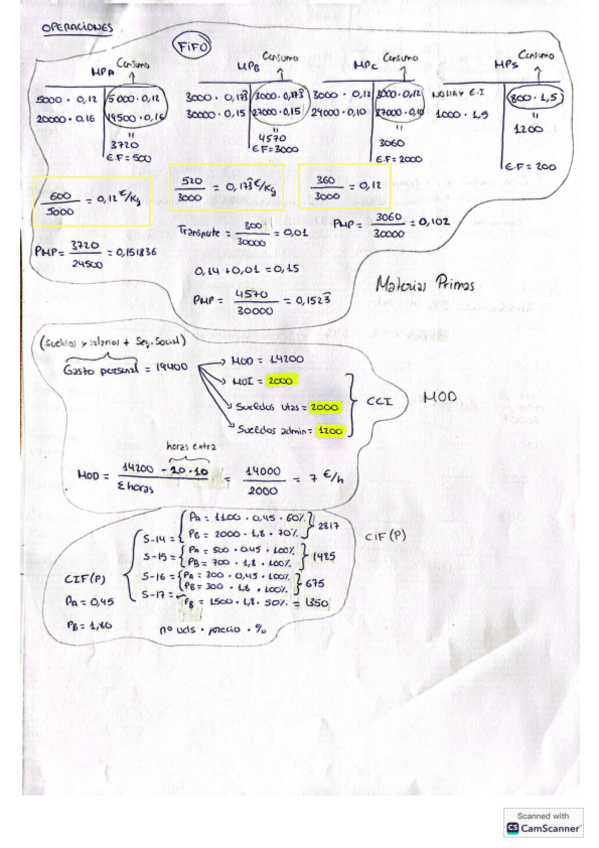 OPERACIONES
FIFO
MPA Consumo
5000 · 0,12 | 5000 · 0,12
20000 · 0,16 | 19500 · 0,16
"
3720
E.F = 500
MPB Consumo
3000 · 0,173̂ | 3000 · 0,173̂
30000 · 0,15 | 27000 · 0,15
"
4570
E.F = 3000
MPC Consumo
3000 · 0,12 | 3000 · 0,12
24000 · 0,10 | 27000 · 0,10
"
3060
E.F = 2000
MPS Consumo
No hay E.I | 800 · 1,5
1000 · 1,5
"
1200
E.F = 200
600/5000 = 0,12 €/Kg
520/3000 = 0,173̂ €/Kg
360/3000 = 0,12
PMP = 3720/24500 = 0,151836
Transporte = 300/30000 = 0,01
PMP = 3060/30000 = 0,102
0,14 + 0,01 = 0,15
PMP = 4570/30000 = 0,1523̂
Materias Primas
(Sueldos y salarios + Seg. Social)
Gasto personal = 19400
MOD = 14200
MOI = 2000
Sueldos vtas = 2000
Sueldos admin = 1200
CCI
MOD
horas extra
MOD = 14200 - 20·10 / Σ horas = 14000/2000 = 7 €/h
CIF(P)
PA = 0,45
PB = 1,80
S-14 = PA = 1100 · 0,45 · 60%
PB = 2000 · 1,8 · 70% } 2817
S-15 = PA = 500 · 0,45 · 100%
PB = 700 · 1,8 · 100% } 1485
S-16 = PA = 300 · 0,45 · 100%
PB = 300 · 1,8 · 100% } 675
S-17 = PB = 1500 · 1,8 · 50% = 1350
nº uds · precio · %
CIF (P)
Scanned with
CS CamScanner